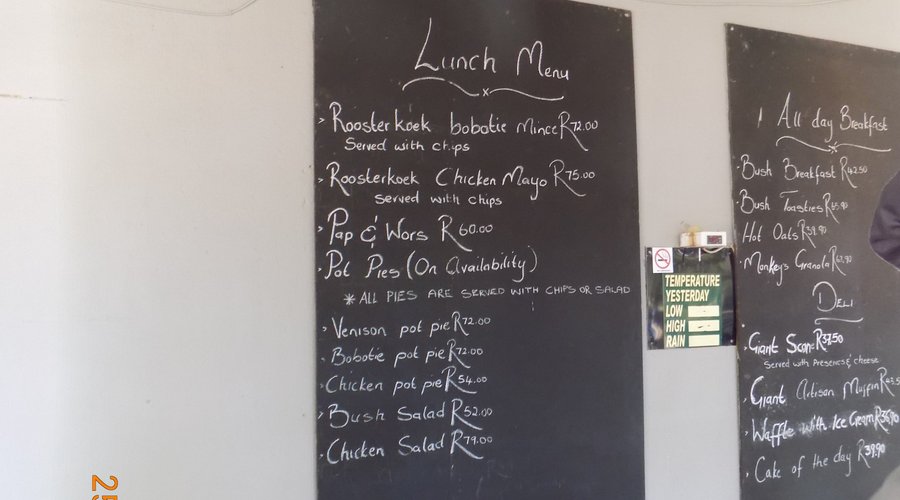 Lunch Menu
Roosterkoek bobotie Mince R72.00
Served with chips
Roosterkoek Chicken Mayo R75.00
Served with chips
Pap & Wors R60.00
Pot Pies (On Availability)
* ALL PIES ARE SERVED WITH CHIPS OR SALAD
Venison pot pie R72.00
Bobotie pot pie R72.00
Chicken pot pie R54.00
Bush Salad R52.00
Chicken Salad R79.00
TEMPERATURE
YESTERDAY
LOW
HIGH
RAIN
All day Breakfast
Bush Breakfast R42.50
Bush Toasties
Hot Oats R39.90
Monkey's Granola
DELI
Giant Scone R37.50
Served with Preserves & cheese
Giant Artisan Muffin
Waffle with Ice Cream R36.90
Cake of the day R39.90
25